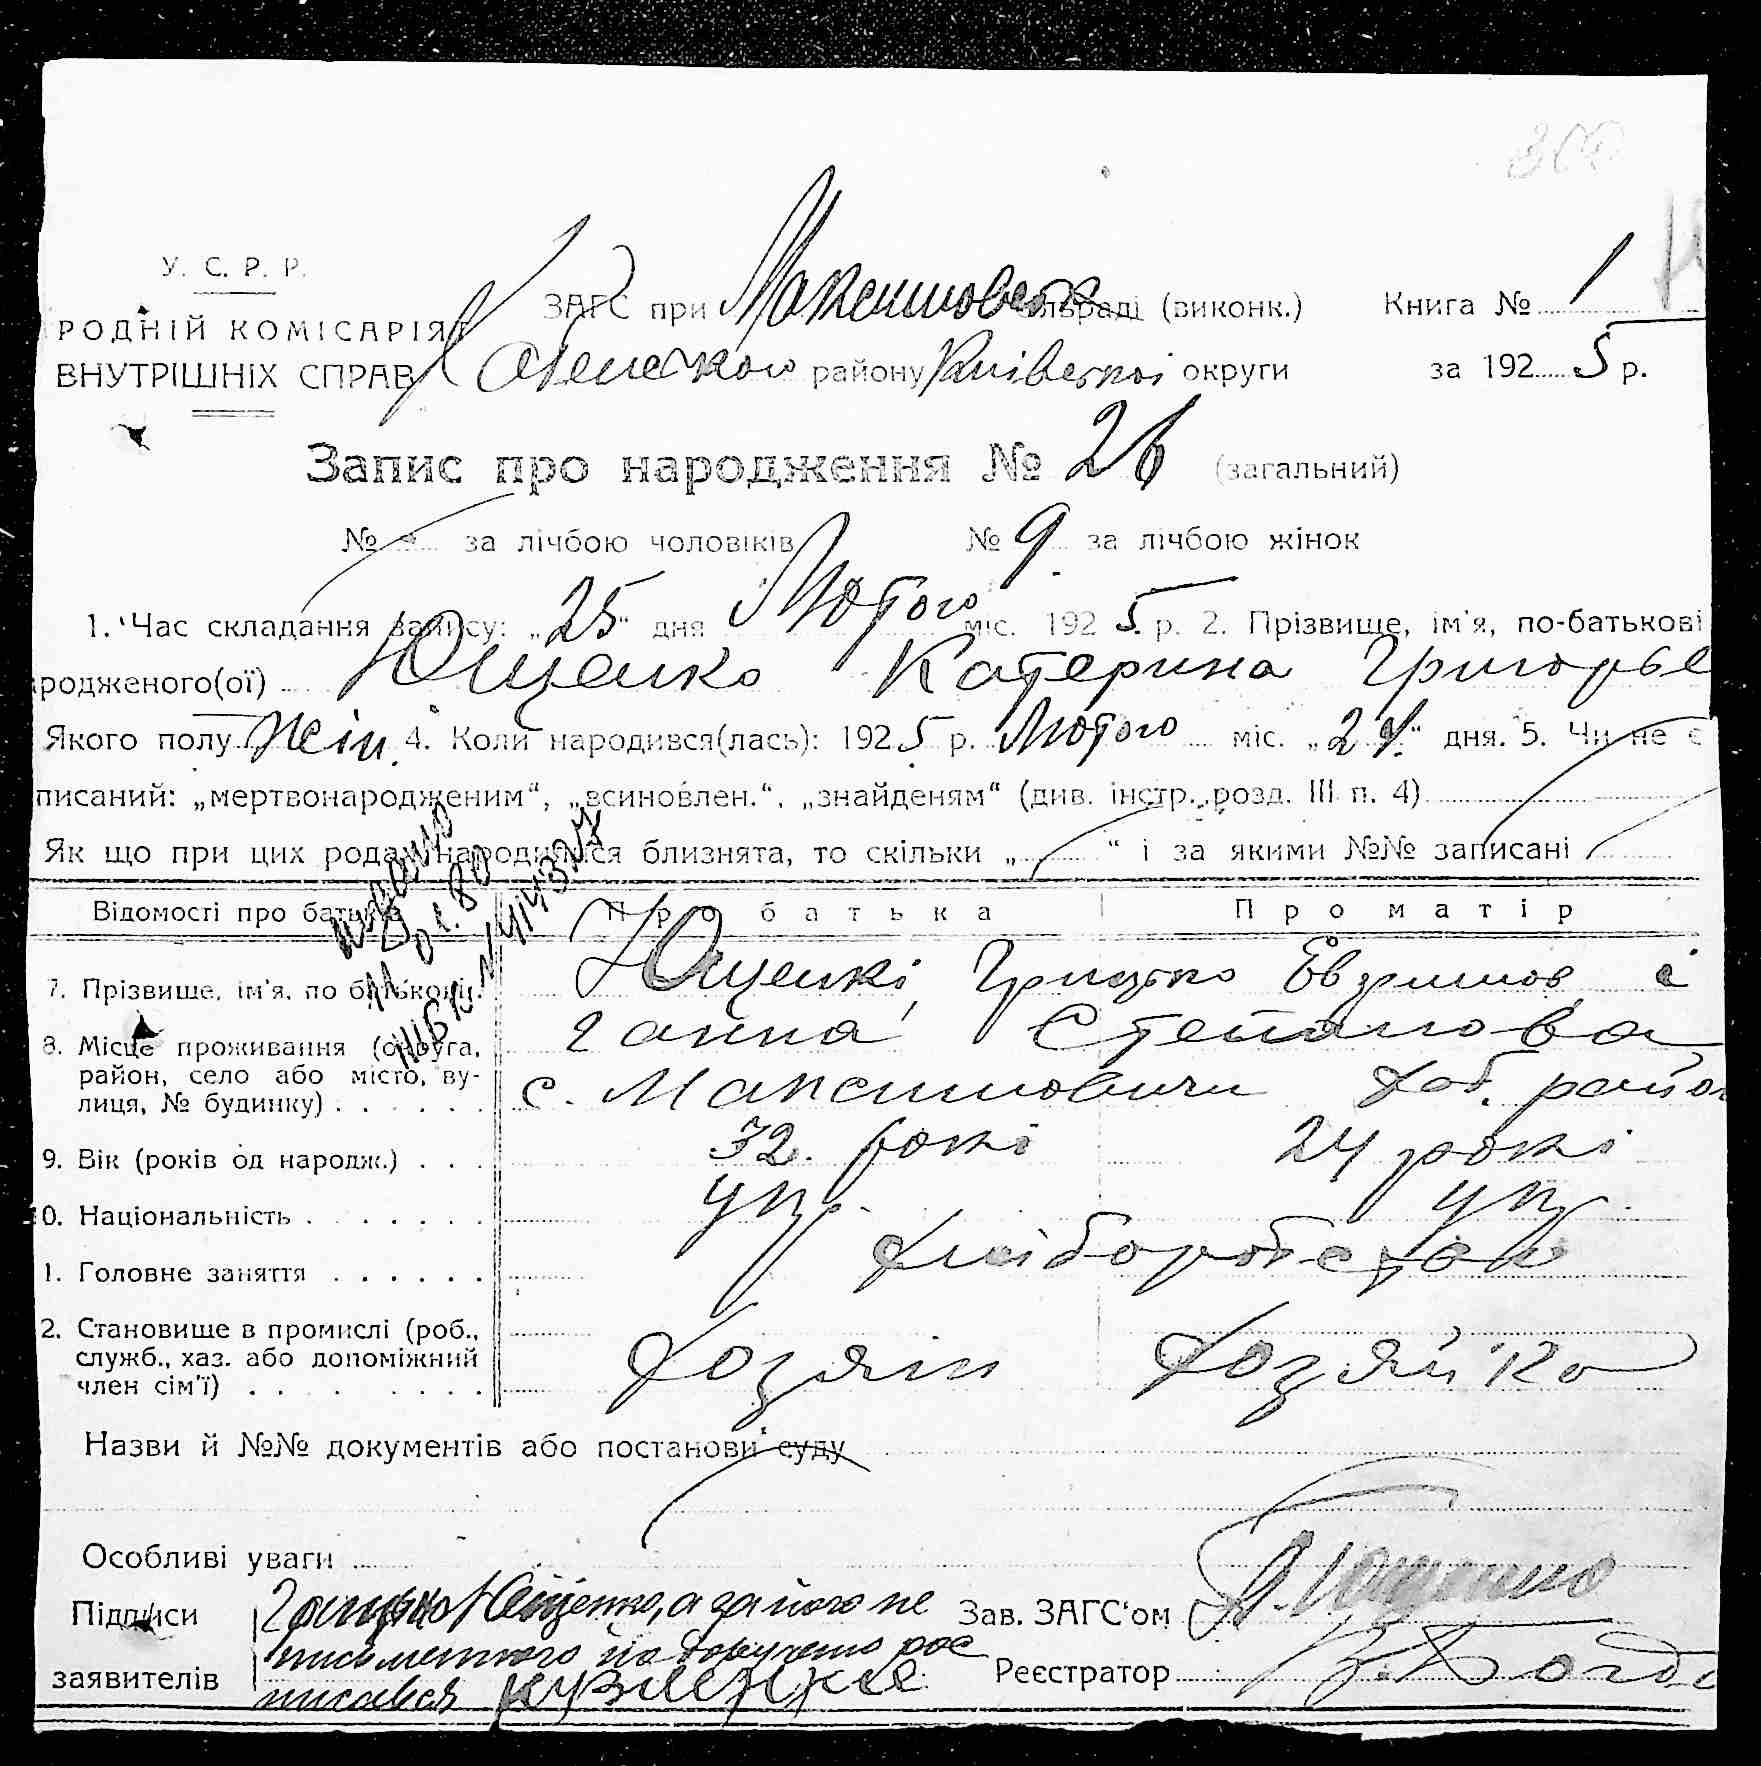 У. С. Р. Р.
РОДНІЙ КОМІСАРІЯТ
ВНУТРІШНІХ СПРАВ
ЗАГС при Максимовск сільраді (виконк.) Книга № 1
району Київської округи за 1925 р.
Запис про народження № 26 (загальний)
№ за лічбою чоловіків № 9 за лічбою жінок
1. Час складання запису: „25“ дня Лютого міс. 1925 р. 2. Прізвище, ім'я, по-батькові
родженого(ої) Ющенко Катерина Григорьє
Якого полу жін. 4. Коли народився(лась): 1925 р. Лютого міс. „24“ дня. 5. Чи не є
писаний: „мертвонародженим“, „всиновлен.“, „знайденям“ (див. інстр. розд. III п. 4)
Як що при цих родах народилися близнята, то скільки „ “ і за якими №№ записані
Видано
Відомості про батьків Про батька Про матір
7. Прізвище, ім'я, по батькові. Ющенкі, Грицько Евхимов, і
Ганна Степанова
8. Місце проживання (округа, район, село або місто, вулиця, № будинку) с. Максимовичи Хаб. район
9. Вік (років од народж.) 32 роки 24 роки
0. Національність укр. укр.
1. Головне заняття Хліборобство
2. Становище в промислі (роб., служб., хаз. або допоміжний член сім'ї) Хозяін Хозяйка
Назви й №№ документів або постанови суду
Особливі уваги
Підписи Ющенко, а за його не
письменного по доручению рос
заявителів писався Кузменко
Зав. ЗАГС'ом Ющенко
Реєстратор